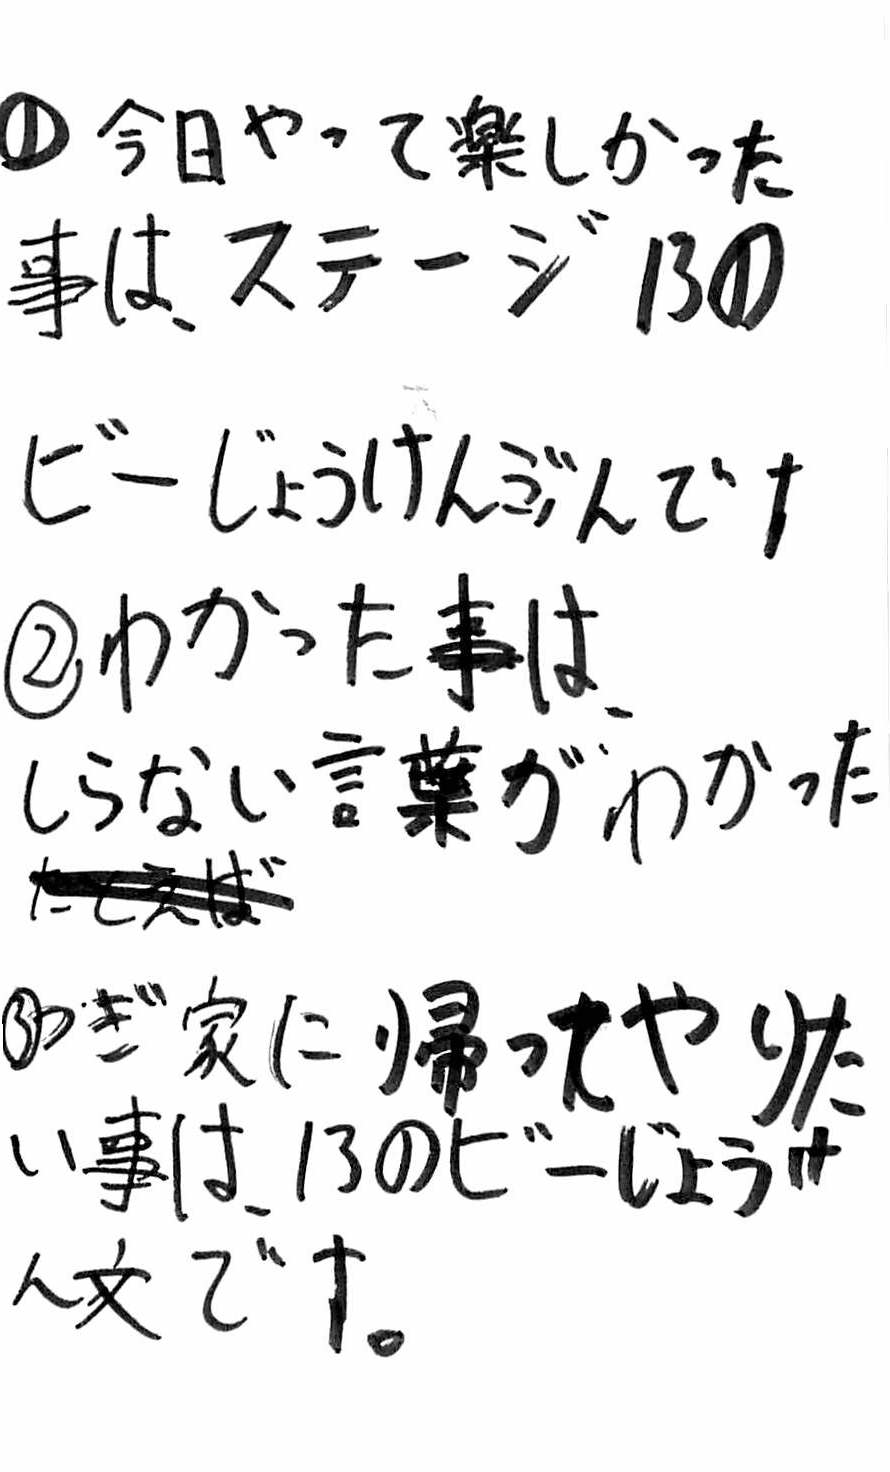 ① 今日やって楽しかった
事は、ステージ 13の
ビーじょうけんぶんです
②わかった事は、
しらない言葉がわかった
たとえば
③つぎ家に帰ってやりた
い事は、13のビーじょうけ
ん文です。